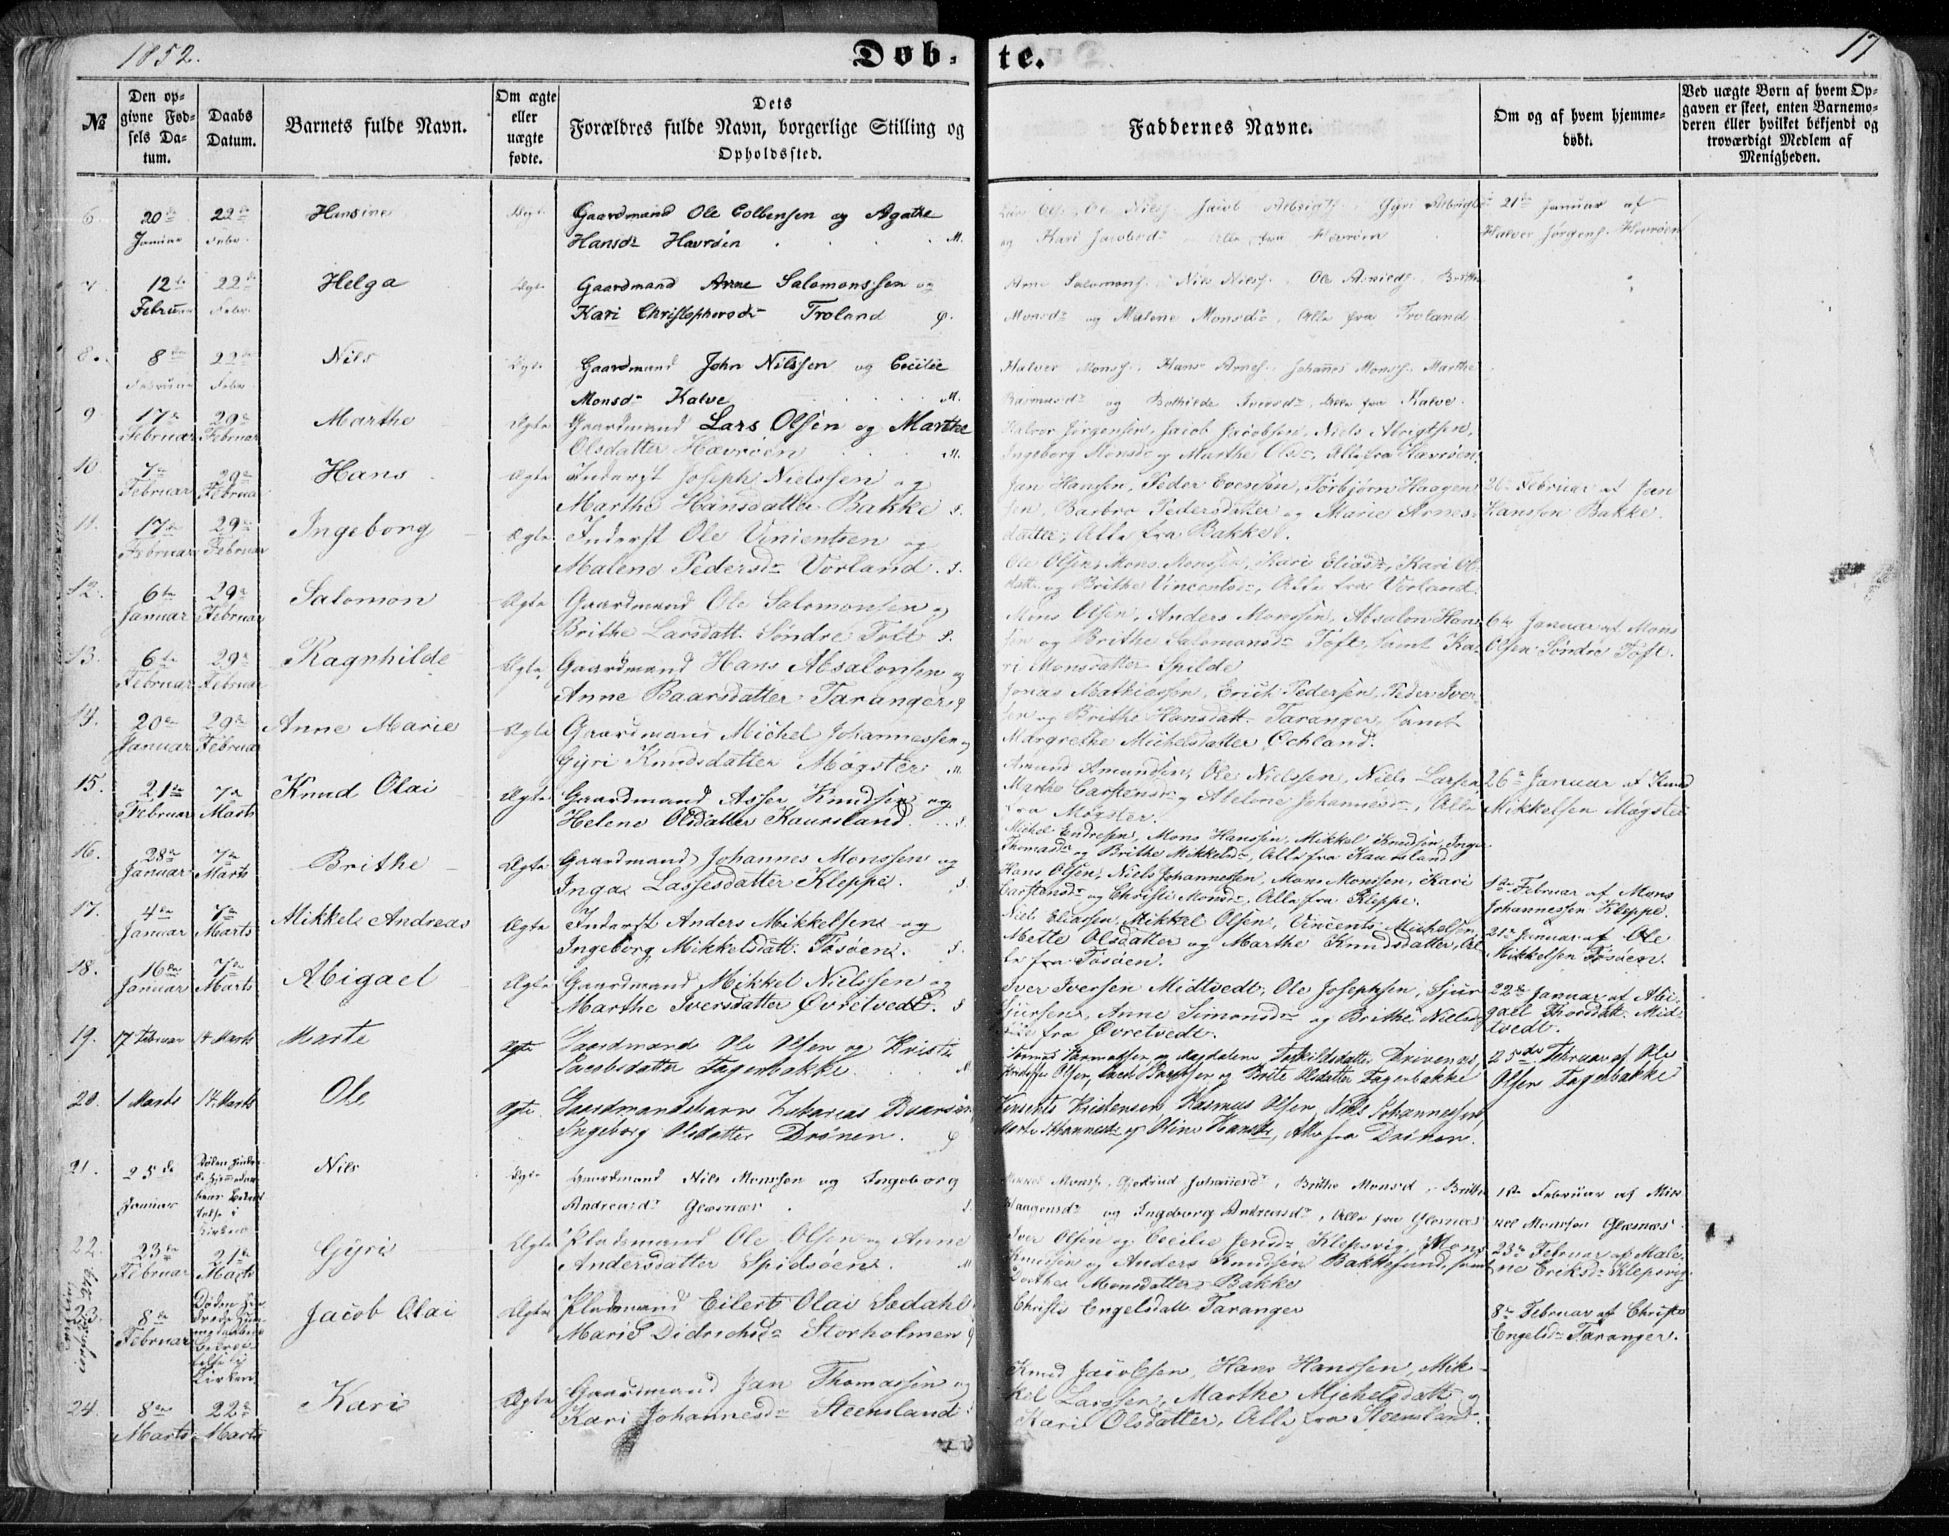 1852.
Døb-
te.
17
№
Den op-
givne Fød-
sels Da-
tum.
Daabs
Datum.
Barnets fulde Navn.
Om ægte
eller
uægte
fødte.
Dets
Forældres fulde Navn, borgerlige Stilling og
Opholdssted.
Faddernes Navne.
Om og af hvem hjemme-
døbt.
Ved uægte Børn af hvem Op-
gaven er skeet, enten Barnemo-
deren eller hvilket bekjendt og
troværdigt Medlem af
Menigheden.
6
20de
Januar
22de
Febr.
Hansine
Ægte
Gaardmand Ole Colbensen og Agathe
Hansdr Havrøen M.
Ole Nielss. Jacob Albrigts. Gyri Albrigtsdr
og Kari Jacobsdr Alle fra Hevrøen
21de Januar af
Halver Jørgens. Hevrøen
7
12te
Februar
22de
Febr.
Helga
Ægte
Gaardmand Arne Salomonssen og
Kari Christophersdr Troland φ.
Arne Salomons. Nils Nilss. Ole Brithe
Monsdr og Malene Monsdr, Alle fra Troland
8.
8de
Februar
22de
Febr.
Nils
Ægte
Gaardmand John Nilssen og Cecilie
Monsdr Kalve M.
Halver Monss. Hans Arnes. Johannes Monss. Marthe
Rasmusdr og Bothilde Iversdr, Alle fra Kalve.
9
17de
Februar
29de
Februar
Marthe
Ægte
Gaardmand Lars Olsen og Marthe
Olsdatter Hævrøen M.
Halvor Jørgensen, Jacob Jacobsen, Niels Albrigtsen,
Ingeborg Monsdr og Marthe Olsdr, Alle fra Hævrøen.
10.
7de
Februar
29de
Februar
Hans
Ægte
Inderst Joseph Nielssen og
Marthe Hansdatter Bakke S.
Jan Hanssen, Peder Evensen, Torbjørn Haagen-
sen, Barbro Pedersdatter og Marie Arnes-
datter, Alle fra Bakke.
Februar af Jan
Hanssen Bakke.
11.
17de
Februar
29de
Februar
Ingeborg
Ægte
Inderst Ole Vinientsen og
Malene Pedersdr Vorland. S.
Ole Olsen, Mons Monssen, Kari Eliasdr, Kari Ols-
datt. og Brithe Vincentsdr, Alle fra Vorland.
12.
6te
Januar
29de
Februar
Salomon
Ægte
Gaardmand Ole Salomonsen og
Brithe Larsdatt. Søndre Toft S.
Mons Olsen, Anders Monssen, Absalon Hans-
sen og Brithe Salomonsdr Toft, samt Ka-
ri Monsdatter Spilde
6te Januar af Mons
Olsen Søndre Toft.
13.
6te
Februar
29de
Februar
Ragnhilde
Ægte
Gaardmand Hans Absalonsen og
Anne Baarsdatter Taranger φ
Jonas Mathiassen, Erich Pedersen, Peder Iver-
sen og Brithe Hansdatt. Taranger, samt
Margrethe Michelsdatter Øchland.
14.
20de
Januar
29de
Februar
Anne Marie
Ægte
Gaardmand Michel Johannessen og
Gyri Knudsdatter Møgster M.
Amund Amundsen, Ole Nielssen, Niels Larsen
Marthe Carstensdr og Abelone Johannesdr, Alle
fra Møgster.
26de Januar af Knud
Mikkelsen Møgster
15.
21de
Februar
7de
Marts
Knud Olai
Ægte
Gaardmand Asser Knudsen og
Helene Olsdatter Kaursland. S.
Michel Endresen, Mons Hanssen, Mikkel Knudsen, Inge
Thomasdr og Brithe Mikkelsdr, Alle fra Kaursland
16.
28de
Januar
7de
Marts
Brithe
Ægte
Gaardmand Johannes Monssen og
Inga Lassesdatter Kleppe. S.
Hans Olsen, Niels Johannessen, Mons Monssen, Kari
Carstensdr og Christi Monsdr, Alle fra Kleppe.
1ste Februar af Mons
Johannessen Kleppe.
17.
4de
Januar
7de
Marts
Mikkel Andreas
Ægte
Inderst Anders Mikkelsen og
Ingeborg Mikkelsdatt. Tøsøen. S.
Niels Eliassen, Mikkel Olsen, Vincents Michelsen,
Mette Olsdatter og Marthe Knudsdatter, Al-
le fra Tøsøen.
21de Januar af Ole
Mikkelsen Tøsøen.
18.
16de
Januar
7de
Marts
Abigael
Ægte
Gaardmand Mikkel Nielssen og
Marthe Iversdatter Øvretvedt. S
Iver Iversen Midtvedt, Ole Josephsen, Sjur
Sjursen, Anne Simonsdr og Brithe Nielsdr
fra Øvretvedt.
22de Januar af Abi-
gael Thorsdatt. Mid-
tvedt.
19.
17 Februar
14 Marts
Marte
Ægte
Gaardmand Ole Olsen og Kristi
Jacobsdatter Fagerbakke. M
Tormod Tormodsen og Magdalene Torkildsdatter Drivenes,
Kristoffer Olsen, og Brite Olsdatter Fagerbakke
25de Februar af Ole
Olsen Fagerbakke
20.
1 Marts
14 Marts
Ole
Ægte
Gaardmandsbarn Zakarias Baarsen
Ingeborg Olsdatter Drønen. φ
Vinsents Kristensen, Rasmus Olsen, Nils Johannessen,
Marte Johannesdr og Oline Hansdr, Alle fra Drønen.
21.
25de
Januar
Døden hindre-
de Hjemmedaa-
bens Bekræf-
telse i
Kirken
Nils
Ægte
Gaardmand Nils Monssen og Ingeborg
Andreasdr Glesnæs. S.
Mikkel Monss. Gjertrud Johannesdr, Brithe Monsd, Brithe
Haagensdr og Ingeborg Andreasdr, Alle fra Glesnæs
1ste Februar af Mik-
kel Monssen Glæsnæs
22.
23de
Februar
21de
Marts
Gyri
Ægte
Pladsmand Ole Olsen og Anne
Andersdatter Spidsøen. M
Iver Olsen og Cecilie Jensdr Klepsvig, Mons
Knudsen og Anders Knudsen Bakkesund, samt
Dorthea Monsdatter Bakke
23de Februar af Male-
ne Eriksdr Klepsvig.
23.
8de
Februar
Døden hin-
drede Hjem-
medaabens
Bekræf-
telse i
Kirken
Jacob Olai
Ægte
Pladsmand Eilert Olai Sædahl
Marie Didrichsdr Storholmen φ
Christi Engelsdatt. Taranger
8de Februar af Christi
Engelsdr Taranger.
24.
8de
Marts
22de
Marts
Kari
Ægte
Gaardmand Jan Thomassen og
Kari Johannesdr Steensland
Knud Jacobsen, Hans Hanssen, Mik-
kel Larssen, Marthe Michelsdatt. og
Kari Olsdatter, Alle fra Steensland.